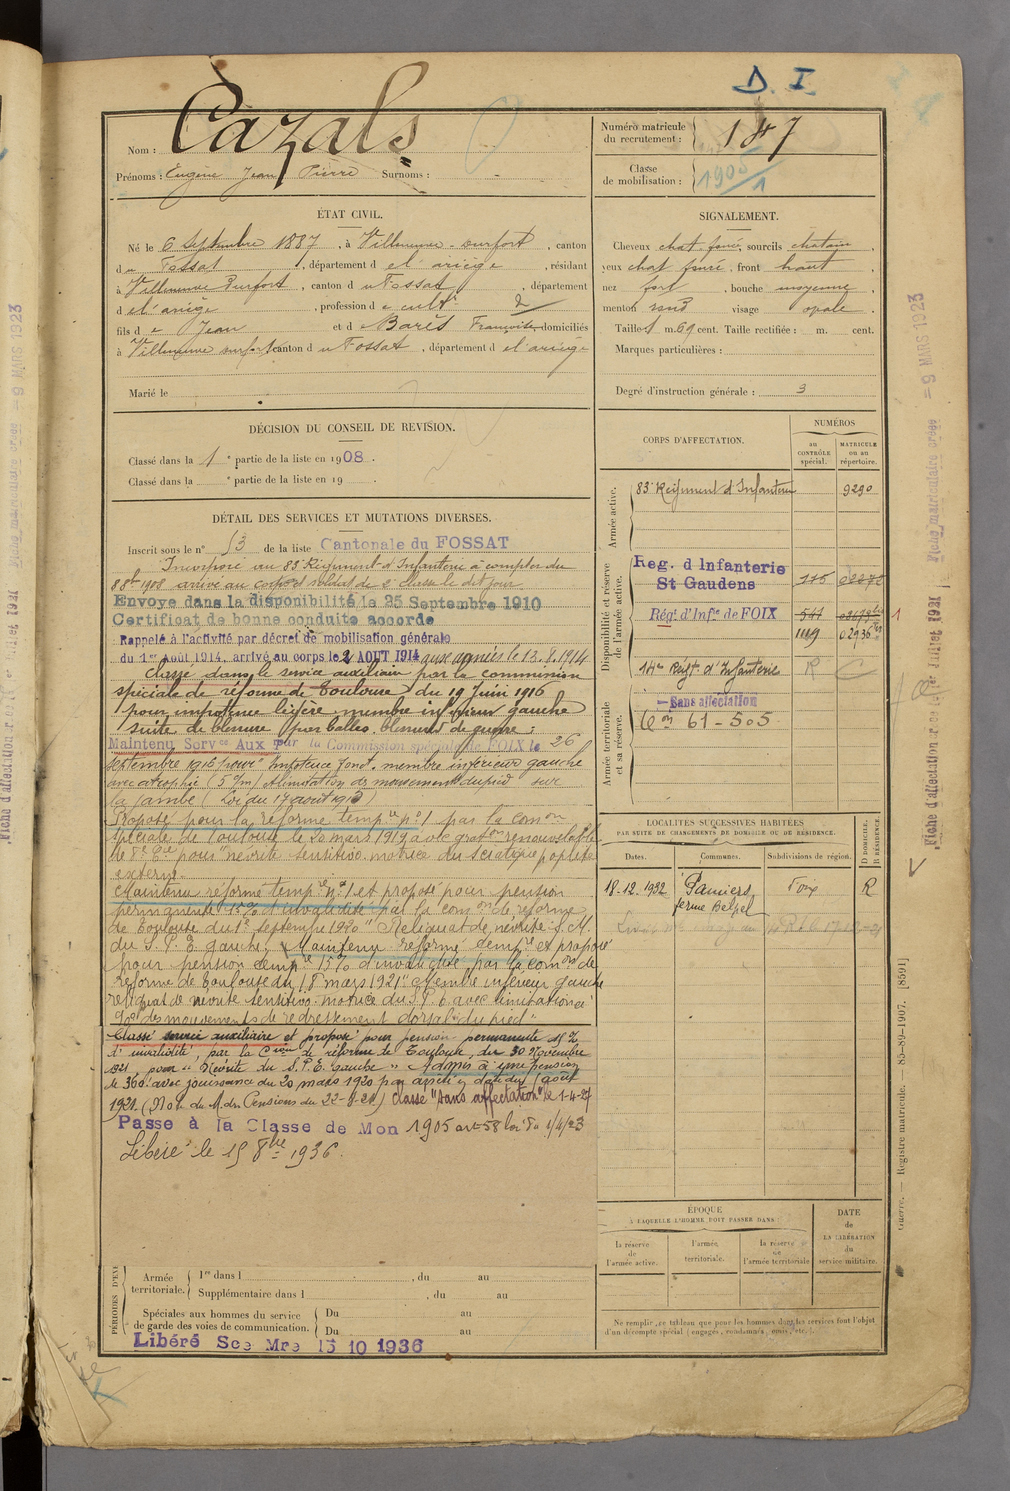 D. I.
Nom : Cazals
Prénoms : Eugène Jean Pierre Surnoms : -
Numéro matricule du recrutement : 187
Classe de mobilisation : 1905/1
ÉTAT CIVIL.
Né le 6 Septembre 1887, à Villeneuve-durfort, canton
du Fossat, département de l'ariège, résidant
à Villeneuve Durfort, canton du Fossat, département
de l'ariège, profession de cultr
fils de Jean et de Barès Françoise domiciliés
à Villeneuve durfort canton du Fossat, département de l'ariège
Marié le
SIGNALEMENT.
Cheveux chat. foncé, sourcils chatain,
yeux chat foncé, front haut,
nez fort, bouche moyenne,
menton rond visage opale.
Taille 1 m. 69 cent. Taille rectifiée : m. cent.
Marques particulières :
Degré d'instruction générale : 3
DÉCISION DU CONSEIL DE REVISION.
Classé dans la 1e partie de la liste en 1908.
Classé dans la e partie de la liste en 19 .
DÉTAIL DES SERVICES ET MUTATIONS DIVERSES.
Inscrit sous le n° 53 de la liste Cantonale du FOSSAT
Incorporé au 83 Régiment d'Infanterie à compter du
8 8bre 1908 arrivé au corps et soldat de 2e classe le dit jour
Envoye dans la disponibilité le 25 Septembre 1910
Certificat de bonne conduite accorde
Rappelé à l'activité par décret de mobilisation générale
du 1er Août 1914, arrivé au corps le 2 AOUT 1914 aux armées le 13.8.1914
Classé dans le service auxiliaire par la commission
spéciale de réforme de Toulouse du 19 Juin 1916
pour impotence légère membre inférieur gauche
suite de blessure par balles, blessures de guerre.
Maintenu Servce Aux par la Commission spéciale de FOIX le 26
septembre 1916 pour "Impotence fonct. membre inférieur gauche
avec atrophie (5 %) limitation de mouvement du pied sur
la jambe (Loi du 17 août 1915)
Proposé pour la réforme tempre n° 1 par la comon
spéciale de Toulouse le 20 mars 1919 avec graton renouvelable
de 8e Cie pour névrite sensitivo motrice du sciatique poplité
externe.
Maintenu réformé tempre n° 1 et proposé pour pension
permanente 15% d'invalidité par la comon de réforme
de Toulouse du 1er septembre 1920 "Reliquat de névrite S.M.
du S.P.E. gauche." Maintenu réformé tempre et proposé
pour pension tempre 15% d'invalidité par la comon de
réforme de Toulouse du 18 mars 1921. Membre inférieur gauche
reliquat de névrite sensitivo-motrice du S.P.E. avec limitation à
90° des mouvements de redressement dorsal du pied"
Classé service auxiliaire et proposé pour pension permanente 15 %
d'invalidité, par la Cion de réforme de Toulouse, du 30 Novembre
1921, pour "Névrite du S.P.E. gauche" Admis à une pension
de 360f avec jouissance du 20 mars 1920 par arrêté en date du août
1921. (Not. du M. des Pensions du 22-8-21) Classé "sans affectation" le 1-4-27
Passe à la Classe de Mon 1905 art 58 loi du 1/4/23
Libéré le 15 8bre 1936.
CORPS D'AFFECTATION.
NUMÉROS
au CONTRÔLE spécial.
MATRICULE ou au répertoire.
Armée active.
83e Régiment d'Infanterie 9290
Disponibilité et réserve de l'armée active.
Reg. d Infanterie
St Gaudens
Rég. d'Infie de FOIX
14me Régt d'Infanterie R C
Armée territoriale et sa réserve.
Sans affectation
61-505
LOCALITÉS SUCCESSIVES HABITÉES
PAR SUITE DE CHANGEMENTS DE DOMICILE OU DE RÉSIDENCE.
Dates. Communes. Subdivisions de région. D DOMICILE. R RÉSIDENCE.
18-12-1922 Pamiers Foix R
ferme Belpel
ÉPOQUE
À LAQUELLE L'HOMME DOIT PASSER DANS :
la réserve de l'armée active.
l'armée territoriale.
la réserve de l'armée territoriale
DATE de LA LIBÉRATION du service militaire.
Ne remplir ce tableau que pour les hommes dont les services font l'objet
d'un décompte spécial (engagés, condamnés, omis, etc.)
PÉRIODES D'EXE
Armée territoriale. 1re dans l , du au
Supplémentaire dans l , du au
Spéciales aux hommes du service Du au
de garde des voies de communication. Du au
Libéré Sce Mre 15 10 1936
Guerre. — Registre matricule. — 85-89-1907. [8591]
Fiche matriculaire créée = 9 MARS 1923
Fiche d'affectation créée le 1er Juillet 1921